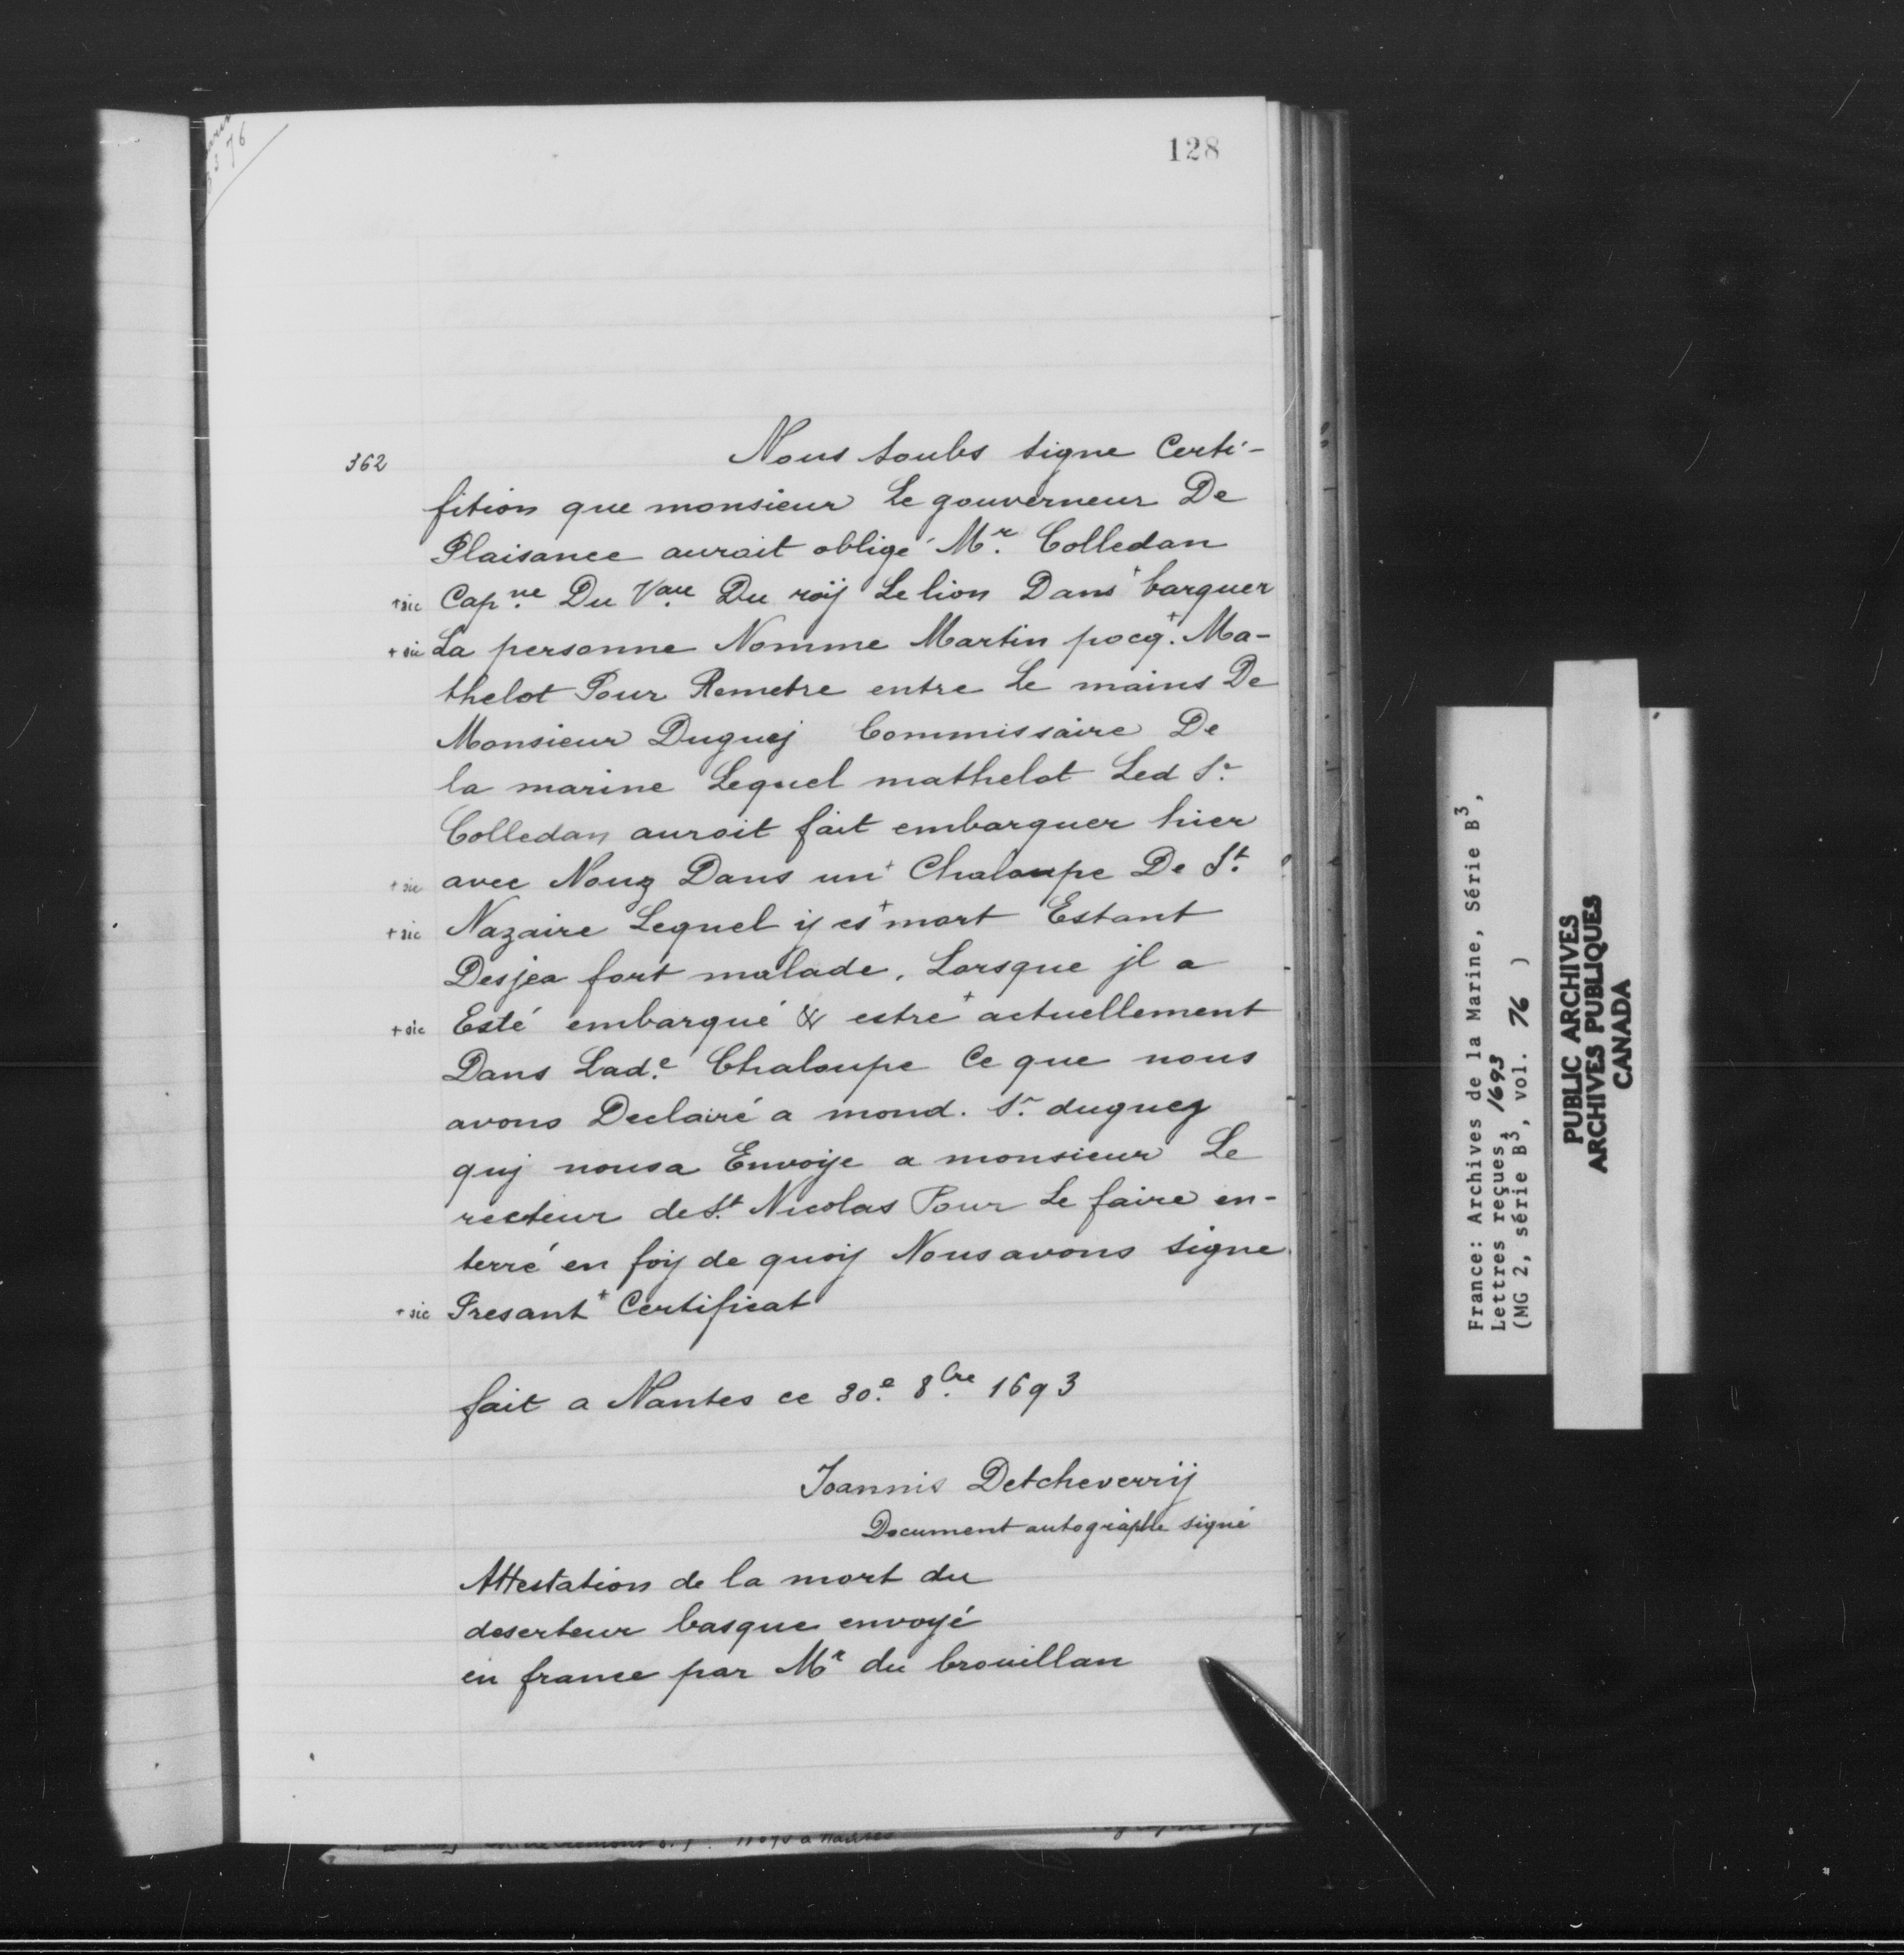 128
B3 76
362
Nous soubs signe Certi-
fition que monsieur Le gouverneur De
Plaisance auroit obligé Mr. Colledan
+sic Cap.ne Du Vau Du roÿ Le lion Dans + barquer
+ sic La personne Nomme Martin pocq.+ Ma-
thelot Pour Remetre entre Le mains De
Monsieur Duguej Commissaire De
la marine Lequel mathelot Led Sr
Colledan auroit fait embarquer hier
+ sic avec Nouz Dans un + Chaloupe De St.
+ sic Nazaire Lequel ij es + mort Estant
Desjea fort malade. Lorsque jl a
+ sic Esté embarqué & estre + actuellement
Dans Lad.e Chaloupe Ce que nous
avons Declairé a mond. Sr. duguez
quj nousa Envoÿe a monsieur Le
recteur de St. Nicolas Pour Le faire en-
terré en foÿ de quoÿ Nous avons signe
+ sic Presant + Certificat
fait a Nantes ce 30.e 8.bre 1693
Joannis Detcheverrÿ
Document autographe signé
Attestation de la mort du
deserteur basque envoyé
en france par Mr du brouillan
France: Archives de la Marine, Série B3,
Lettres reçues, 1693
(MG 2, série B3, vol. 76 )
PUBLIC ARCHIVES
ARCHIVES PUBLIQUES
CANADA